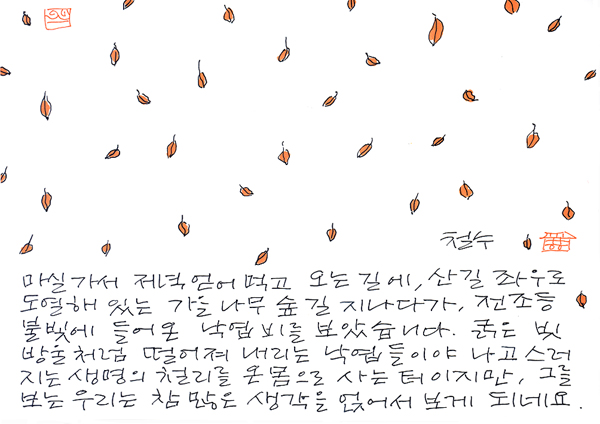 철수
마실가서 저녁 얻어먹고 오는 길에, 산길 좌우로
도열해 있는 가을 나무 숲길 지나다가, 전조등
불빛에 들어온 낙엽비를 보았습니다. 굵은 빗
방울처럼 떨어져 내리는 낙엽들이야 나고 스러
지는 생명의 철리를 온몸으로 사는 터이지만, 그를
보는 우리는 참 많은 생각을 얹어서 보게 되네요.